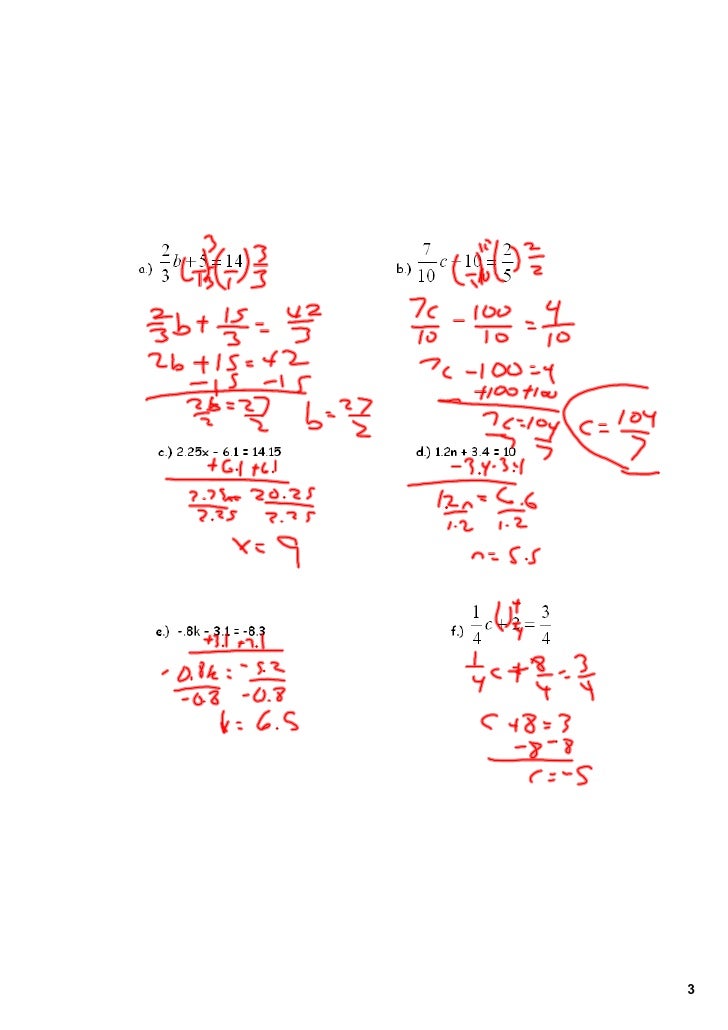 a.) 2/3 b + 5 = 14 (3/3) (3/3)
2/3 b + 15/3 = 42/3
2b + 15 = 42
-15 -15
2b/2 = 27/2 b = 27/2
b.) 7/10 c - 10 = 2/5 (10/10) (2/2)
7c/10 - 100/10 = 4/10
7c - 100 = 4
+100 +100
7c/7 = 104/7 c = 104/7
c.) 2.25x - 6.1 = 14.15
+6.1 +6.1
2.25x/2.25 = 20.25/2.25
x = 9
d.) 1.2n + 3.4 = 10
-3.4 -3.4
1.2n/1.2 = 6.6/1.2
n = 5.5
e.) -.8k - 3.1 = -8.3
+3.1 +3.1
-0.8k/-0.8 = -5.2/-0.8
k = 6.5
f.) 1/4 c + 2 = 3/4 (4/4)
1/4 c + 8/4 = 3/4
c + 8 = 3
-8 -8
c = -5
3